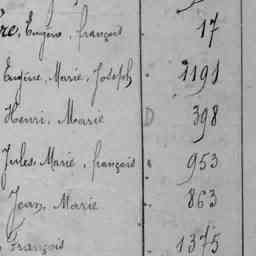 re, Eugène, françois 17
Eugène, Marie, Joseph 1191
Henri, Marie D 398
Jules, Marie, françois 953
Jean, Marie 863
François 1375